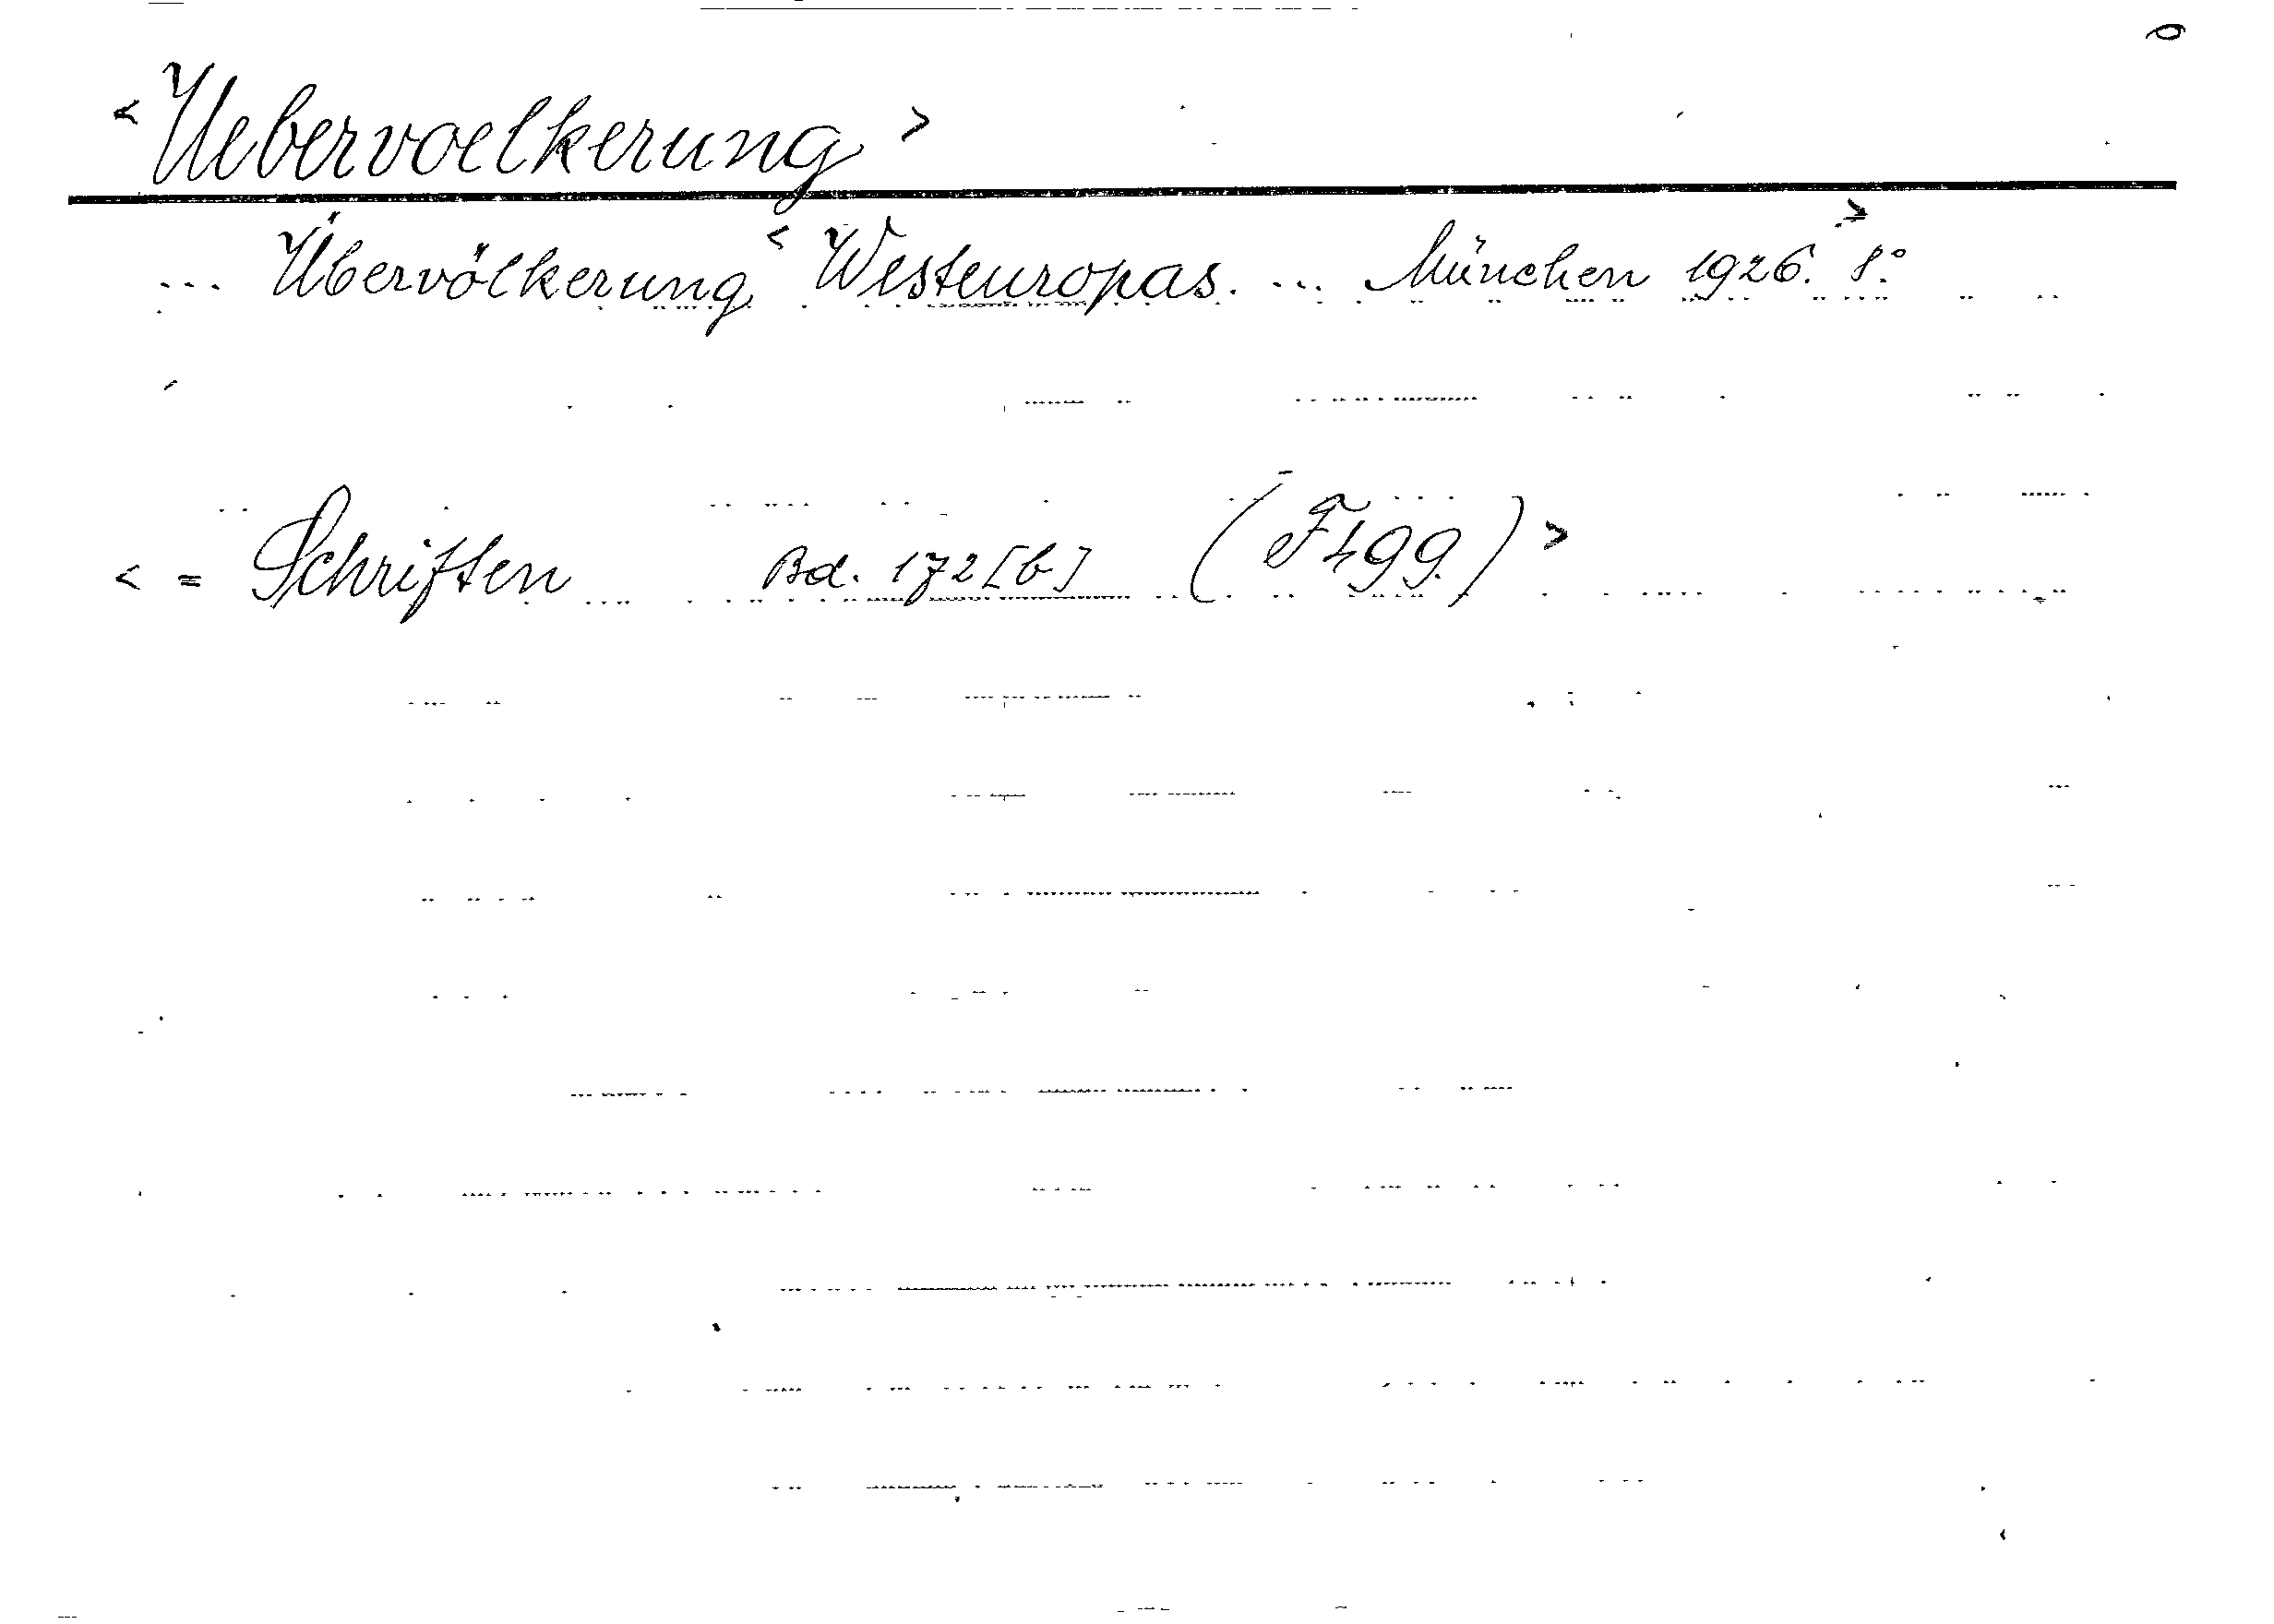 < Uebervoelkerung >
... Übervölkerung < Westeuropas. ... München 1926. > 8.°
< = Schriften Bd. 172 [b] (F499.) >